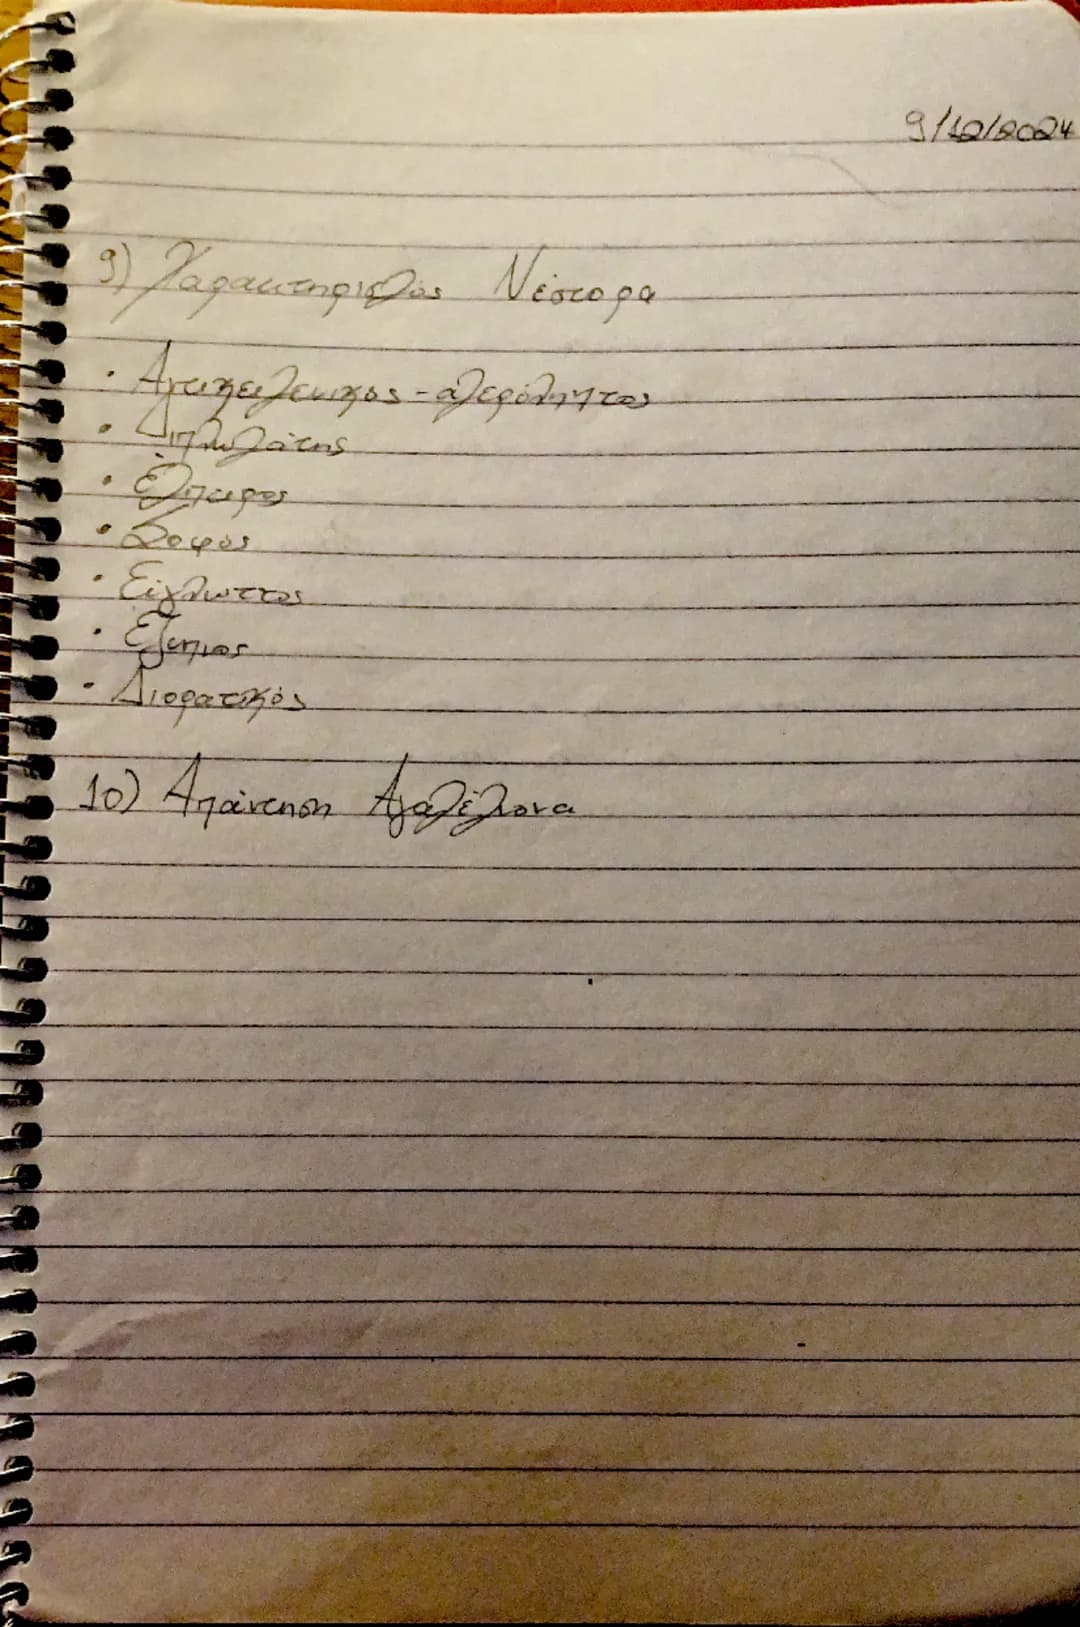 9/12/2024
9) Χαρακτηρισμός Νέστορα
• Αντικειμενικός - αμερόληπτος
• Διπλωμάτης
• Έμπειρος
• Σοφός
• Εύγλωττος
• Έξυπνος
• Διορατικός
10) Απάντηση Αγαμέμνονα